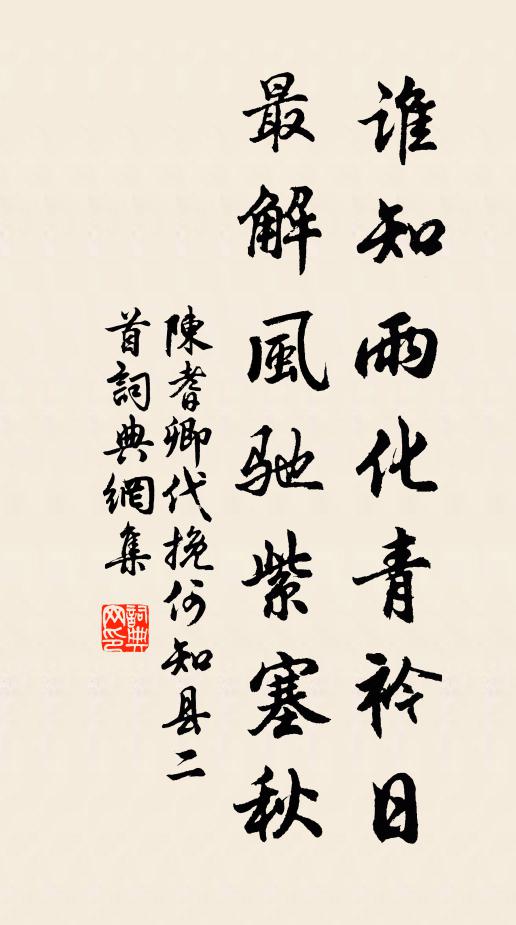 誰知雨化青衿日
最解風馳紫塞秋
陳耆卿代挽何知县二
首詞典網集
詞典网印